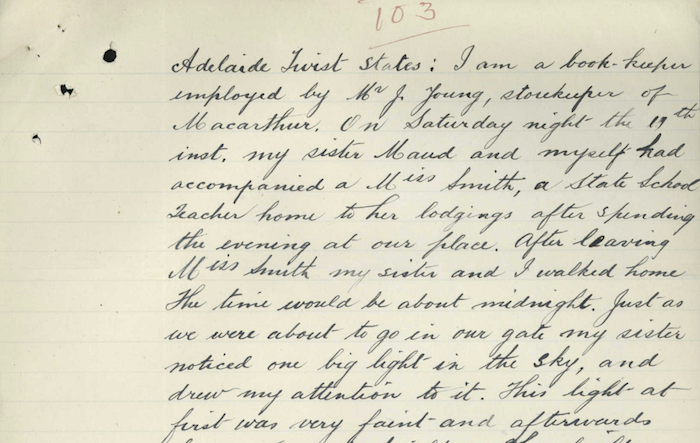 103
Adelaide Twist States: I am a book-keeper
employed by Mr J. Young, storekeeper of
Macarthur. On Saturday night the 19th
inst. my sister Maud and myself had
accompanied a Miss Smith, a State School
Teacher home to her lodgings after spending
the evening at our place. After leaving
Miss Smith my sister and I walked home
The time would be about midnight. Just as
we were about to go in our gate my sister
noticed one big light in the sky, and
drew my attention to it. This light at
first was very faint and afterwards